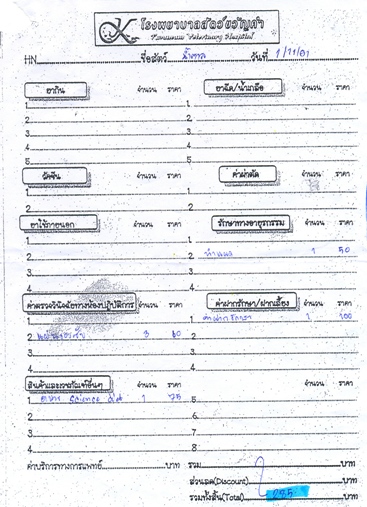 โรงพยาบาลสัตว์ขวัญคำ
Kwankum Veterinary Hospital
HN ชื่อสัตว์ วันที่ 1/11/61
ยากิน จำนวน ราคา ยาฉีด/น้ำเกลือ จำนวน ราคา
1. 1.
2. 2.
3. 3.
4. 4.
5. 5.
วัคซีน จำนวน ราคา ค่าผ่าตัด จำนวน ราคา
1. 1.
2. 2.
ยาใช้ภายนอก จำนวน ราคา รักษาทางอายุรกรรม จำนวน ราคา
1. 1.
2. 2. ทำแผล 1 50
3. 3.
4. 4.
ค่าตรวจวินิจฉัยทางห้องปฏิบัติการ จำนวน ราคา ค่าฝากรักษา/ฝากเลี้ยง จำนวน ราคา
1. 1. ค่าฝากรักษา 1 100
2. 3 60 2.
3. 3.
4. 4.
สินค้าและเวชภัณฑ์อื่นๆ จำนวน ราคา จำนวน ราคา
1. อาหาร Science diet 1 75 5.
2. 6.
3. 7.
4. 8.
ค่าบริการทางการแพทย์ บาท รวม บาท
ส่วนลด(Discount) บาท
รวมทั้งสิ้น(Total) 285 บาท